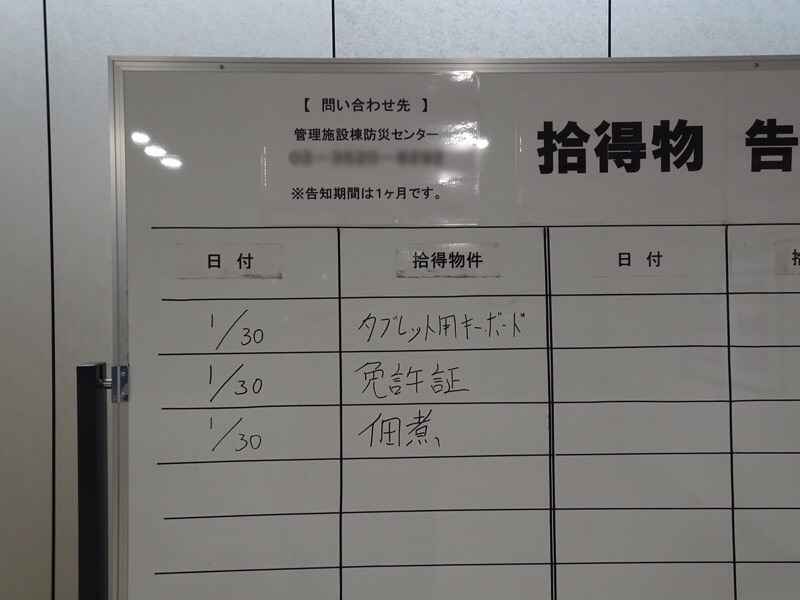 【 問い合わせ先 】
管理施設棟防災センター
※告知期間は1ヶ月です。
拾得物 告
日 付 拾得物件 日 付
1/30 タブレット用キーボード
1/30 免許証
1/30 佃煮